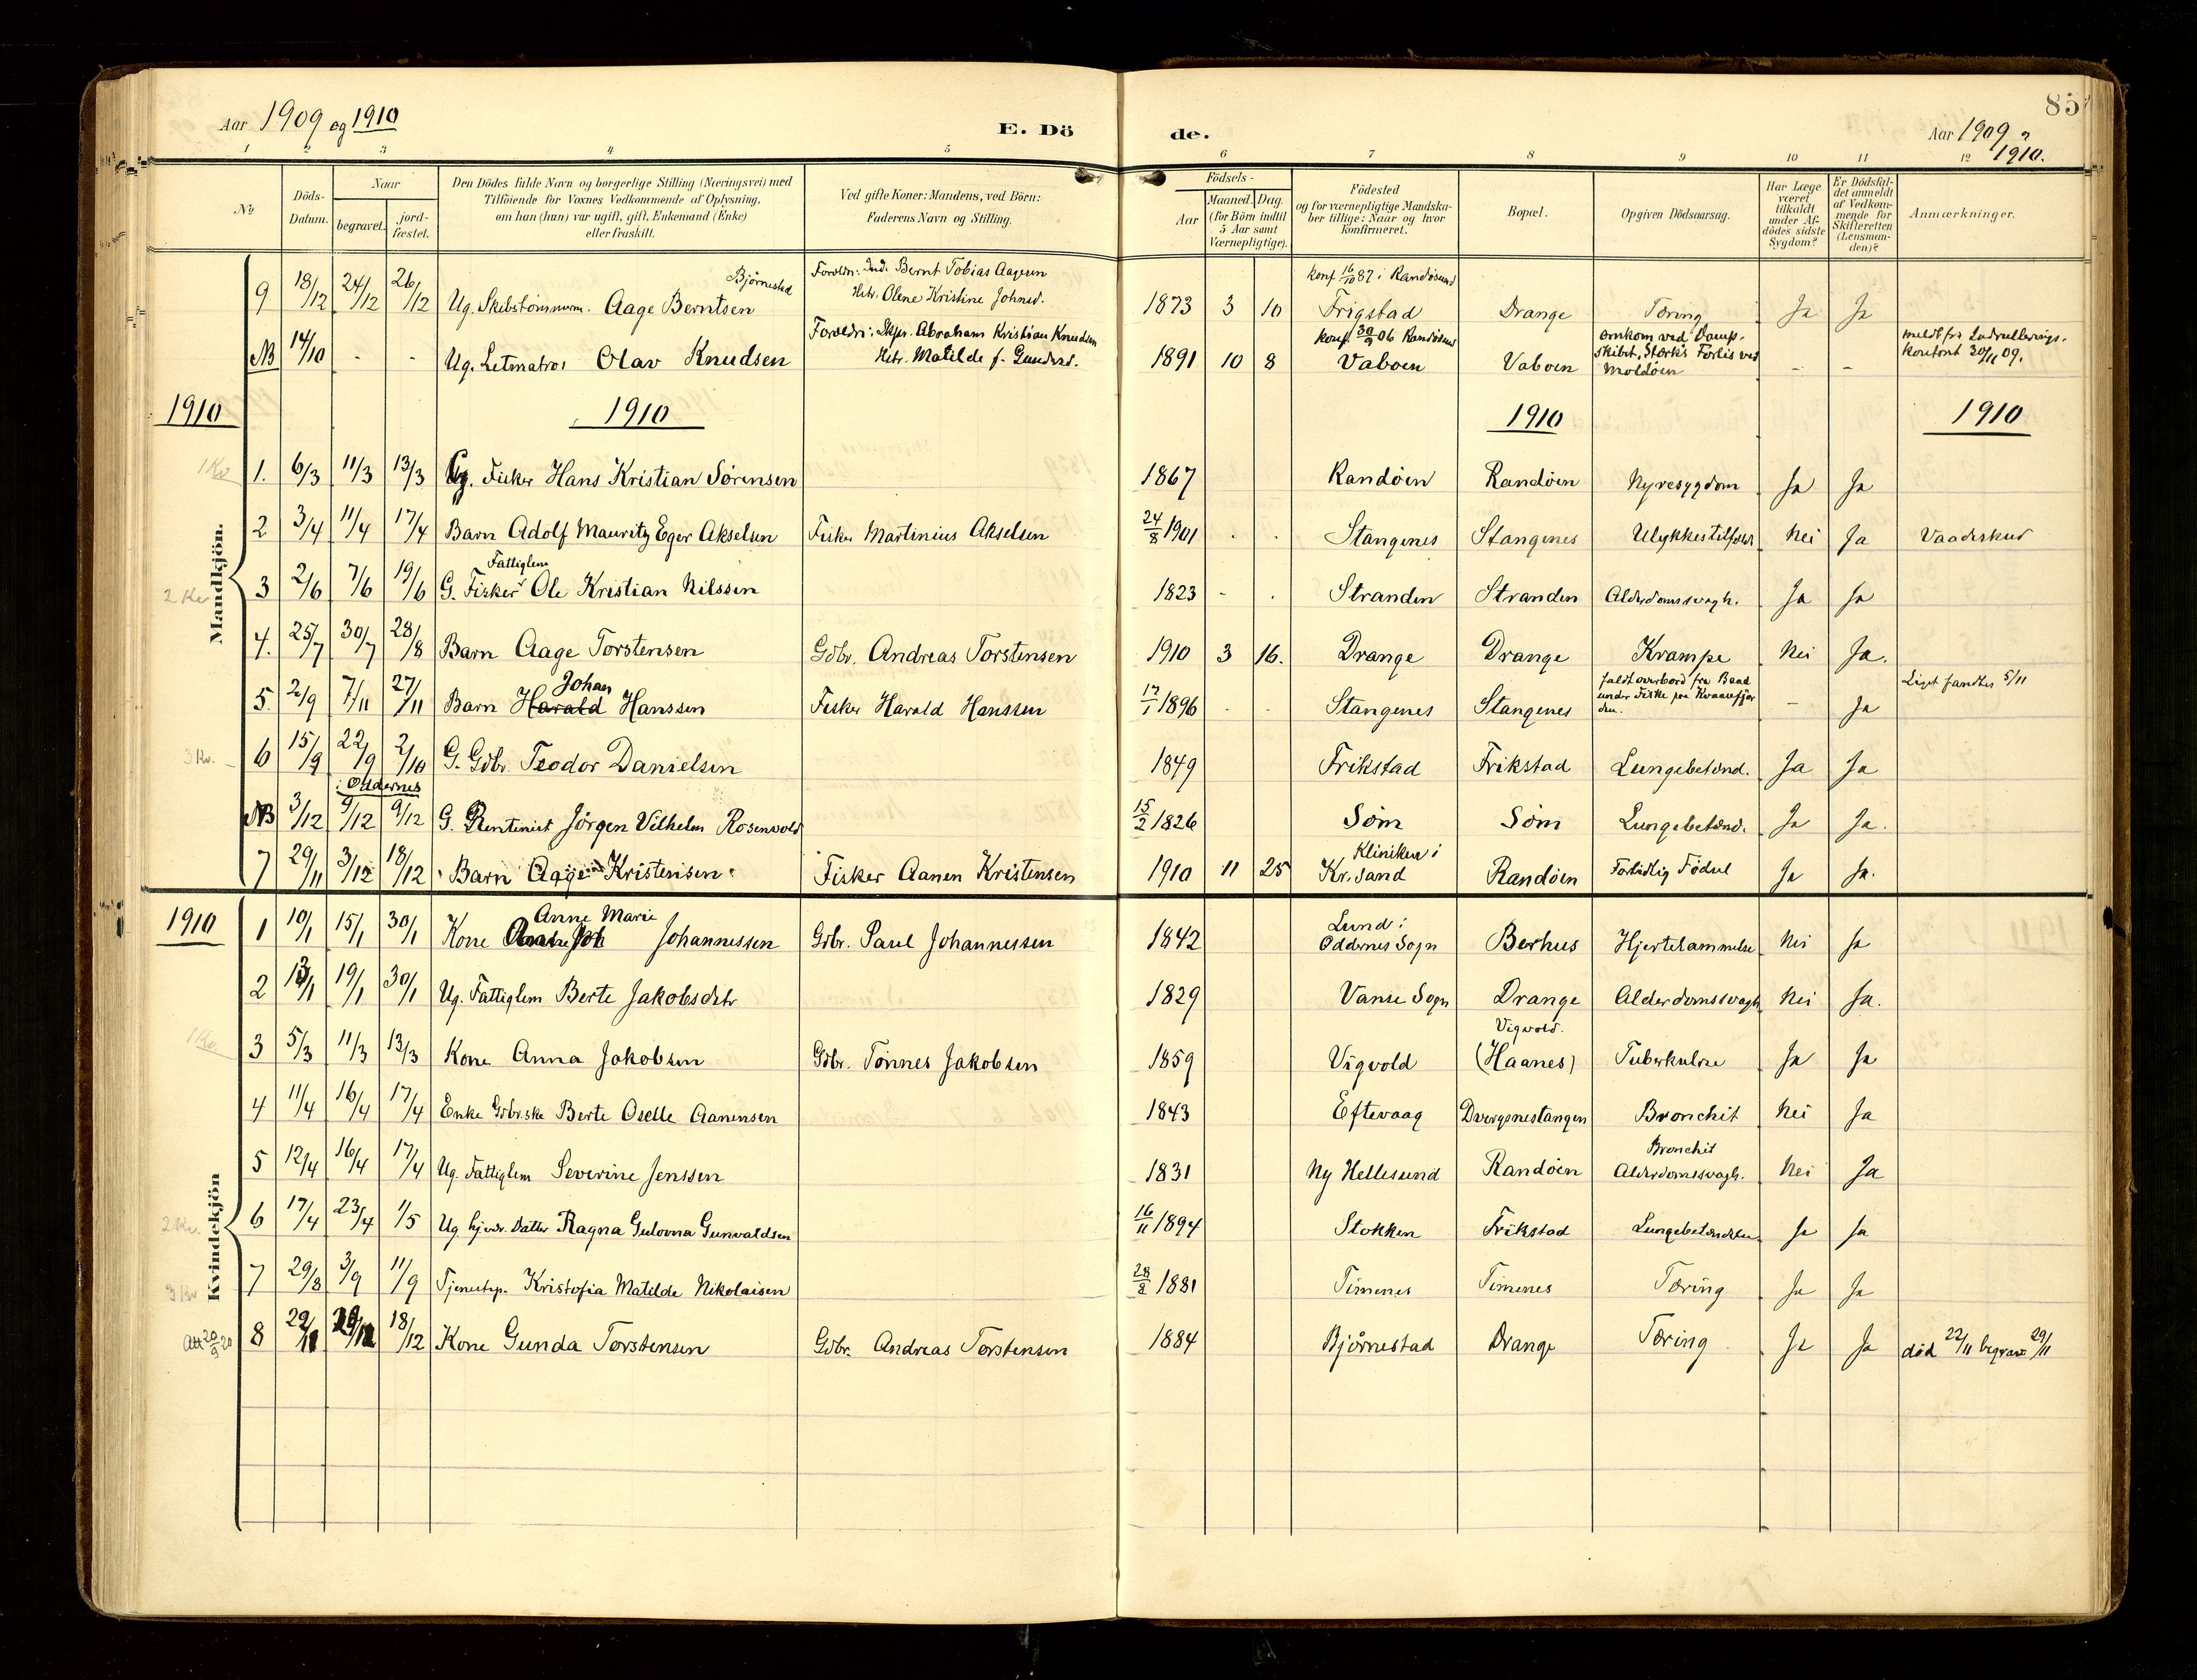 Aar 1909 og 1910
E. Dö
de.
85
Aar 1909 og 1910.
1 2 3 4 5 6 7 8 9 10 11 12
No
Döds-Datum.
Naar
begravet.
jord-fæstet.
Den Dödes fulde Navn og borgerlige Stilling (Næringsvei) med
Tilföiende for Voxnes Vedkommende af Oplysning,
om han (hun) var ugift, gift, Enkemand (Enke)
eller fraskilt.
Ved gifte Koner: Mandens, ved Börn:
Faderens Navn og Stilling.
Födsels-
Aar
Maaned. Dag.
(for Börn indtil
5 Aar samt
Værnepligtige).
Födested
og for værnepligtige Mandska-
ber tillige: Naar og hvor
konfirmeret.
Bopæl.
Opgiven Dödsaarsag.
Har Læge
været
tilkaldt
under Af-
dödes sidste
Sygdom?
Er Dödsfal-
det anmeldt
af Vedkom-
mende for
Skifteretten
(Lensman-
den)?
Anmærkninger.
Bjørnestad
Foreldr: Ind. Bernt Tobias Aagesen
Htr. Olene Kristine Johnsd.
konf 16/10 87 i Randøsund
9 18/12 24/12 26/12 Ug. Skibstømmerm. Aage Berntsen 1873 3 10 Frigstad Drange Tæring Ja Ja
Foreldr: Skpr. Abraham Kristian Knudsen
Htr. Matilde f. Gundersd.
konf. 30/9 06 Randøsund
omkom ved Damp-
skibet, Stærks Forlis ved
Moldøen
meldt fra Indrullerings-
kontoret 30/11 09.
NB 14/10 - - Ug. Letmatros Olav Knudsen 1891 10 8 Vaboen Vaboen - -
1910 1910 1910 1910
Mandkjön.
1 Kv
1. 6/3 11/3 13/3 Ug. Fisker Hans Kristian Sørensen 1867 Randøen Randøen Nyresygdom Ja Ja
2 3/4 11/4 17/4 Barn Adolf Mauritz Eger Akselsen Fisker Martinius Akselsen 24/8 1901 . . Stangenes Stangenes Ulykkestilfæld. Nei Ja Vaadeskud
Fattiglem
2 Kv
3 2/6 7/6 19/6 G. Fisker Ole Kristian Nilssen 1823 - . Stranden Stranden Alderdomssvagh. Ja Ja
4. 25/7 30/7 28/8 Barn Aage Torstensen Gdbr. Andreas Torstensen 1910 3 16. Drange Drange Krampe Nei Ja.
Johan
faldt overbord fra Baad
under Fiske paa Kvaasefjor
den.
Liget fandtes 5/11
5. 2/9 7/11 27/11 Barn Harald Hanssen Fisker Harald Hanssen 17/1 1896 . . Stangenes Stangenes - Ja
3 Kv.
6 15/9 22/9 2/10 G. Gdbr. Teodor Danielsen 1849 Frikstad Frikstad Lungebetænd. Ja Ja
i Oddernes
NB 3/12 9/12 9/12 G. Rentenist Jørgen Vilhelm Rosenvold 15/2 1826 Søm Søm Lungebetænd. Ja Ja.
Kliniken i
7 29/11 3/12 18/12 Barn Aage Kristensen Fisker Aanen Kristensen 1910 11 25 Kr.sand Randøen Fortidlig Fødsel Ja Ja.
1910
Kvindekjön
Anne Marie
Lund i
1 10/1 15/1 30/1 Kone Johannessen Gdbr. Paul Johannessen 1842 Oddernes Sogn Berhus Hjertelammelse Nei Ja
2 13/1 19/1 30/1 Ug. Fattiglem Berte Jakobsdtr 1829 Vanse Sogn Drange Alderdomssvagh Nei Ja.
1 Kv.
Vigvold.
3 5/3 11/3 13/3 Kone Anna Jakobsen Gdbr. Tønnes Jakobsen 1859 Vigvold (Haanes) Tuberkulose Ja Ja
4 11/4 16/4 17/4 Enke Gdbr.ske Berte Oselle Aanensen 1843 Eftevaag Dvergsnestangen Bronchit Nei Ja
Bronchit
5 12/4 16/4 17/4 Ug. Fattiglem Severine Jenssen 1831 Ny Hellesund Randøen Alderdomssvagh. Nei Ja
2 Kv.
6 17/4 23/4 1/5 Ug. hjemv. Datter Ragna Gulovna Gunvaldsen 16/11 1894 Stokken Frikstad Lungebetændelse Ja Ja
3 Kv
7 29/8 3/9 11/9 Tjenestep. Kristofia Matilde Nikolaisen 1881 Timenes Timenes Tæring Ja Ja
Att 20/9 20
8 22/11 29/11 18/12 Kone Gunda Torstensen Gdbr. Andreas Torstensen 1884 Bjørnestad Drange Tæring Ja Ja død 22/11 begravet 29/11